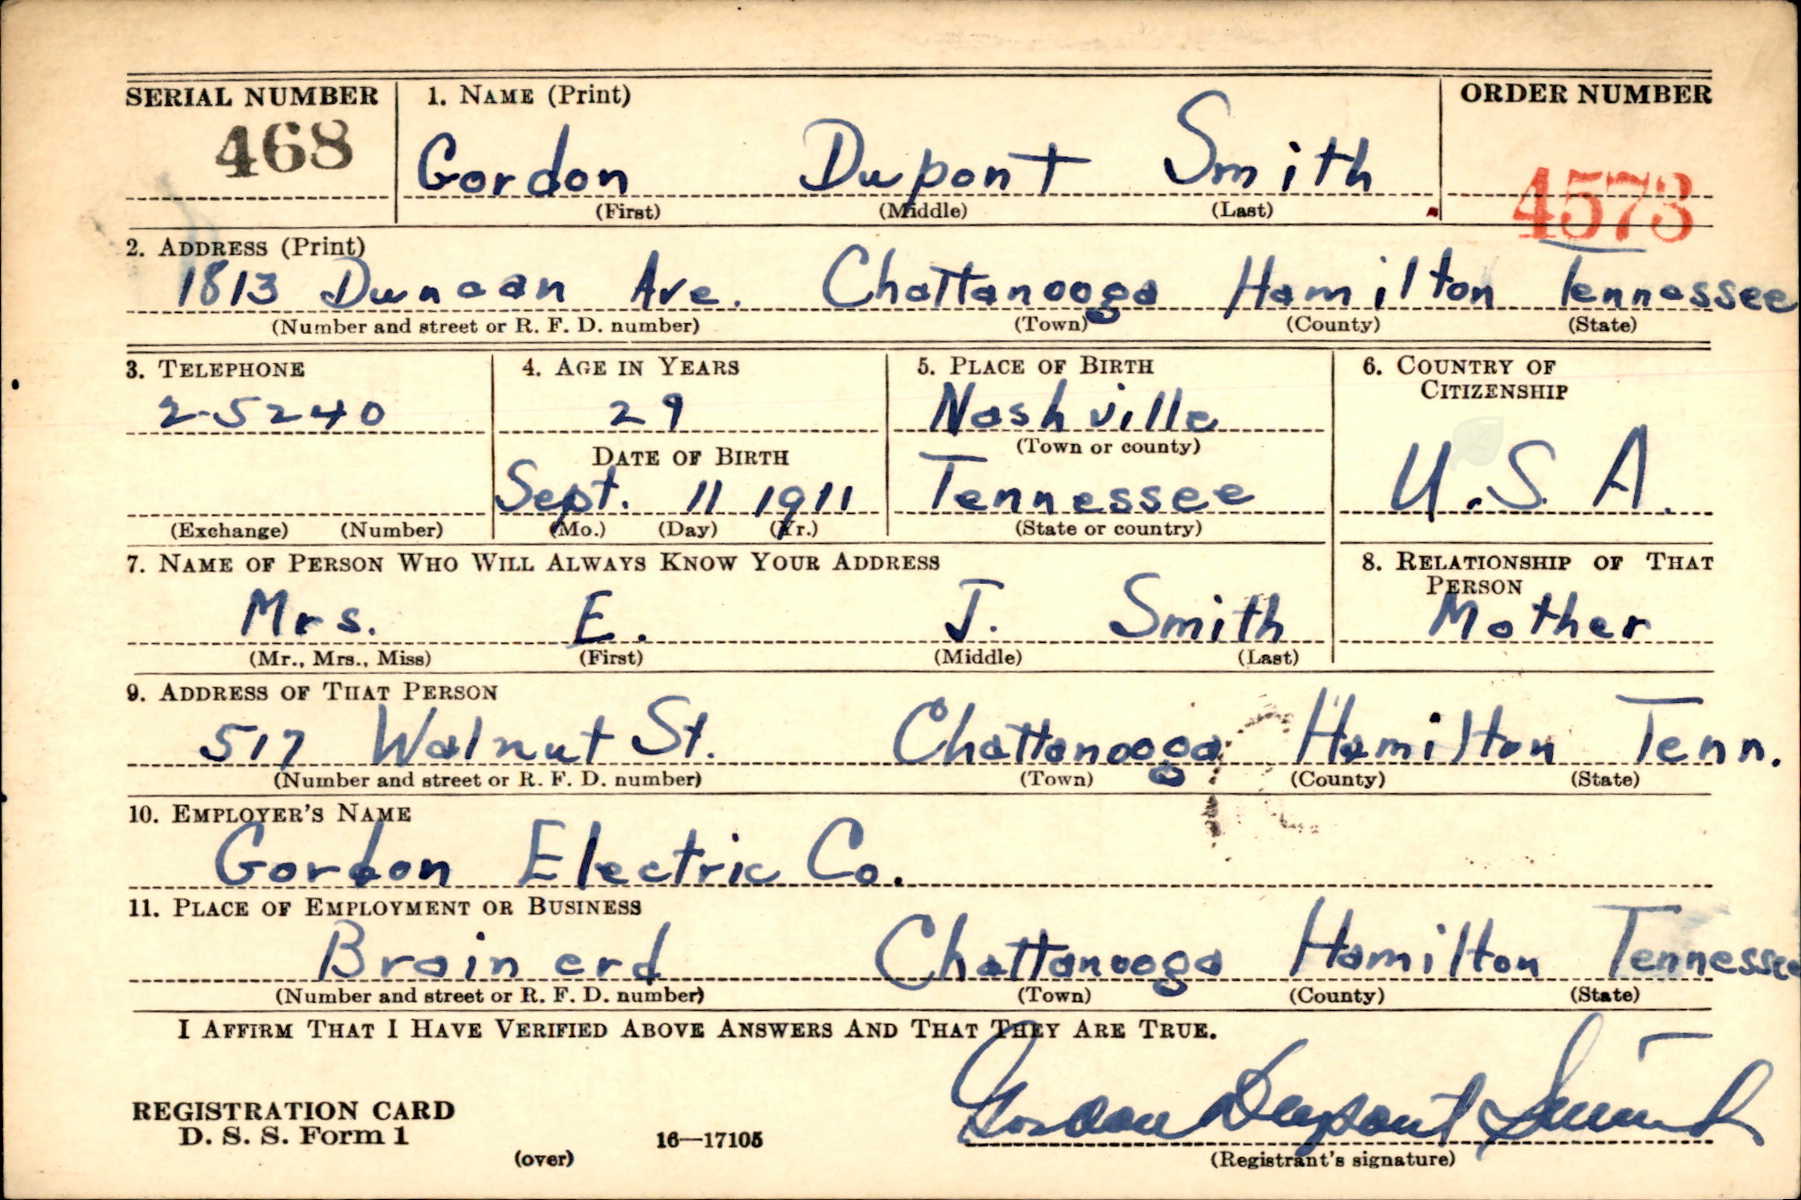 SERIAL NUMBER 1. NAME (Print) ORDER NUMBER
468 Gordon Dupont Smith 4573
(First) (Middle) (Last)
2. ADDRESS (Print)
1813 Duncan Ave. Chattanooga Hamilton Tennessee
(Number and street or R. F. D. number) (Town) (County) (State)
3. TELEPHONE 4. AGE IN YEARS 5. PLACE OF BIRTH 6. COUNTRY OF CITIZENSHIP
2-5240 29 Nashville
(Town or county)
DATE OF BIRTH
Sept. 11 1911 Tennessee U.S.A.
(Exchange) (Number) (Mo.) (Day) (Yr.) (State or country)
7. NAME OF PERSON WHO WILL ALWAYS KNOW YOUR ADDRESS 8. RELATIONSHIP OF THAT PERSON
Mrs. E. J. Smith Mother
(Mr., Mrs., Miss) (First) (Middle) (Last)
9. ADDRESS OF THAT PERSON
517 Walnut St. Chattanooga Hamilton Tenn.
(Number and street or R. F. D. number) (Town) (County) (State)
10. EMPLOYER'S NAME
Gordon Electric Co.
11. PLACE OF EMPLOYMENT OR BUSINESS
Brainerd Chattanooga Hamilton Tennessee
(Number and street or R. F. D. number) (Town) (County) (State)
I AFFIRM THAT I HAVE VERIFIED ABOVE ANSWERS AND THAT THEY ARE TRUE.
Gordon Dupont Smith
REGISTRATION CARD
D. S. S. Form 1 16—17105
(over) (Registrant's signature)